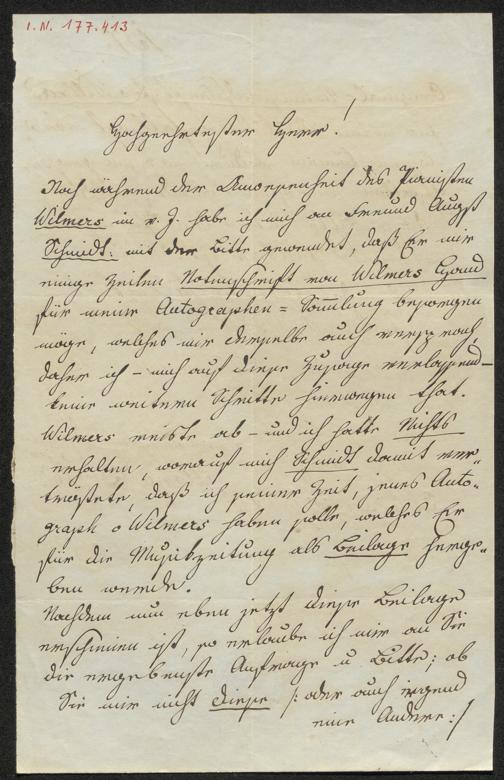 I. N. 177.413
Hochgeehrtester Herr!
Noch während der Anwesenheit des Pianisten
Wilmers im v. J. habe ich mich an Freund Augst
Schmidt: mit der Bitte gewendet, daß Er mir
einige Zeilen Notenschrift von Wilmers Hand
für meine Autographen = Sammlung besorgen
möge, welches mir derselbe auch versprach,
daher ich – mich auf diese Zusage verlassend –
keine weitern Schritte hinwegen that.
Wilmers reiste ab – und ich hatte Nichts
erhalten, worauf mich Schmidt damit ver„
tröstete, daß ich seiner Zeit, jenes Auto„
graph v Wilmers haben solle, welches Er
für die Musikzeitung als Beilage herge„
ben werde.
Nachdem nun eben jetzt diese Beilage
erschienen ist, so erlaube ich mir an Sie
die ergebenste Anfrage u Bitte; ob
Sie mir nicht diese /: oder auch irgend
eine Andere :/